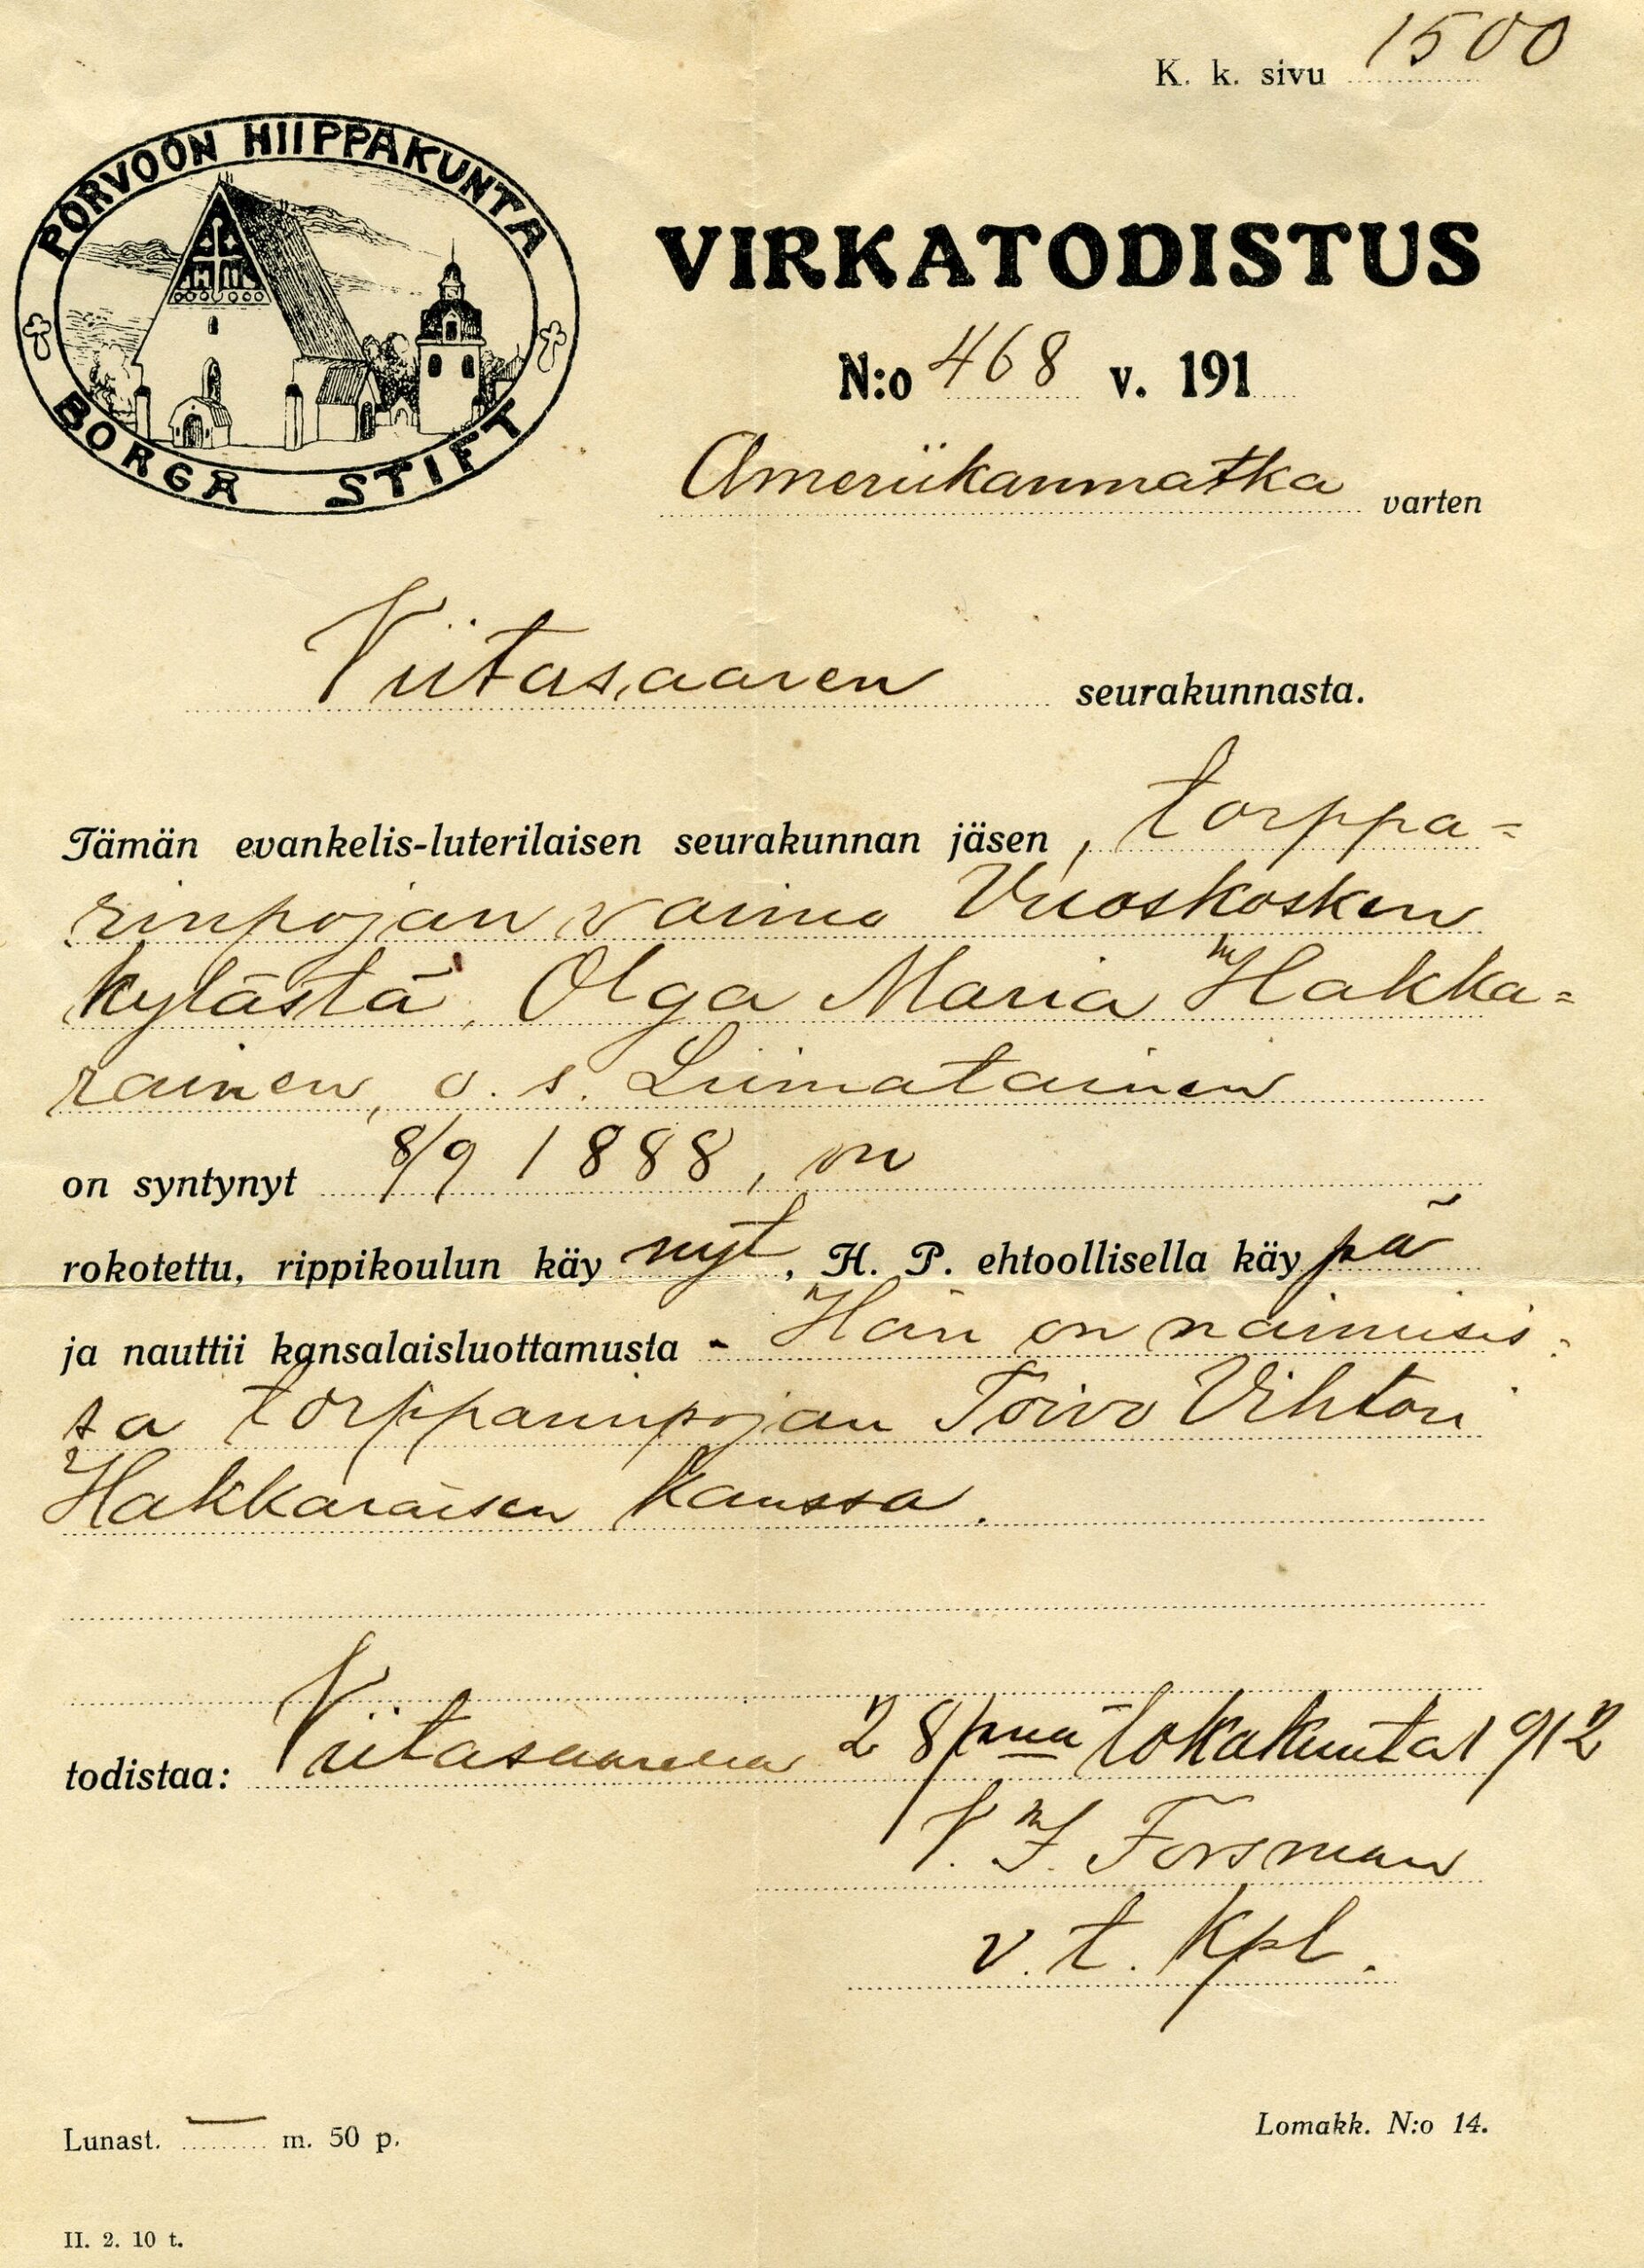 K. k. sivu 1500
PORVOON HIIPPAKUNTA
BORGÅ STIFT
VIRKATODISTUS
N:o 468 v. 191
Ameriikanmatka varten
Viitasaaren seurakunnasta.
Tämän evankelis-luterilaisen seurakunnan jäsen, torppa=
rinpojan vaimo Vuoskosken
kylästä, Olga Maria Hakka=
rainen, o. s. Liimatainen
on syntynyt 8/9 1888, on
rokotettu, rippikoulun käynyt, H. P. ehtoollisella käypä
ja nauttii kansalaisluottamusta - Hän on naimisis=
sa torpparinpojan Toivo Vihtori
Hakkaraisen kanssa.
todistaa: Viitasaarella 28 p:nä lokakuuta 1912
V. J. Forsman
v. t. Kpl.
Lunast. — m. 50 p.
Lomakk. N:o 14.
II. 2. 10 t.